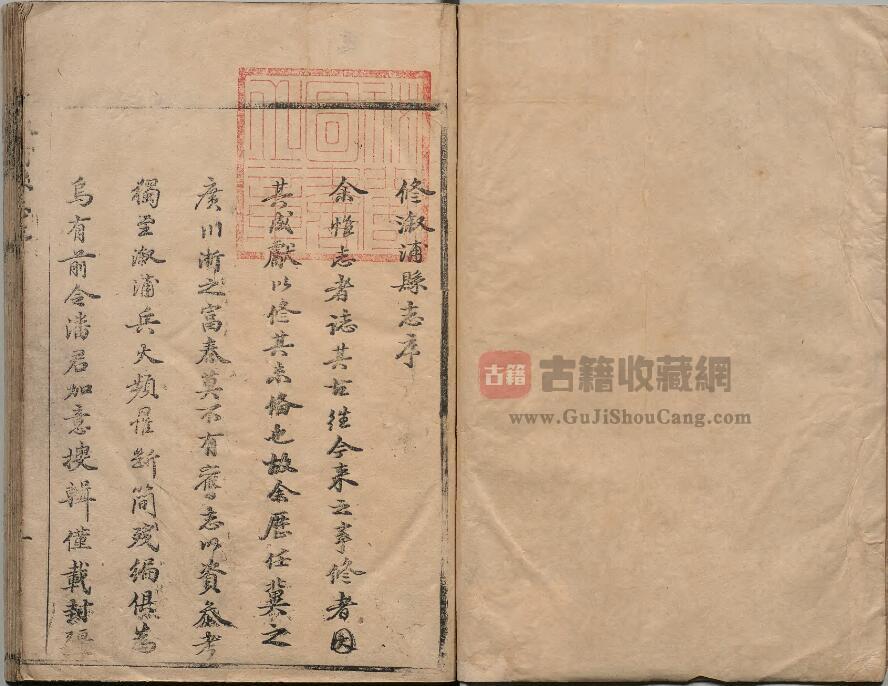 修溆浦縣志序
余惟志者誌其古往今来之事修者因
其成獻以修其未俻也故余歷任冀之
廣川浙之富春莫不有舊志以資叅考
獨至溆浦兵火頻罹断简残编俱為
烏有前令潘君加意搜輯僅載封疆
古籍
古籍收藏網
www.GuJiShouCang.com